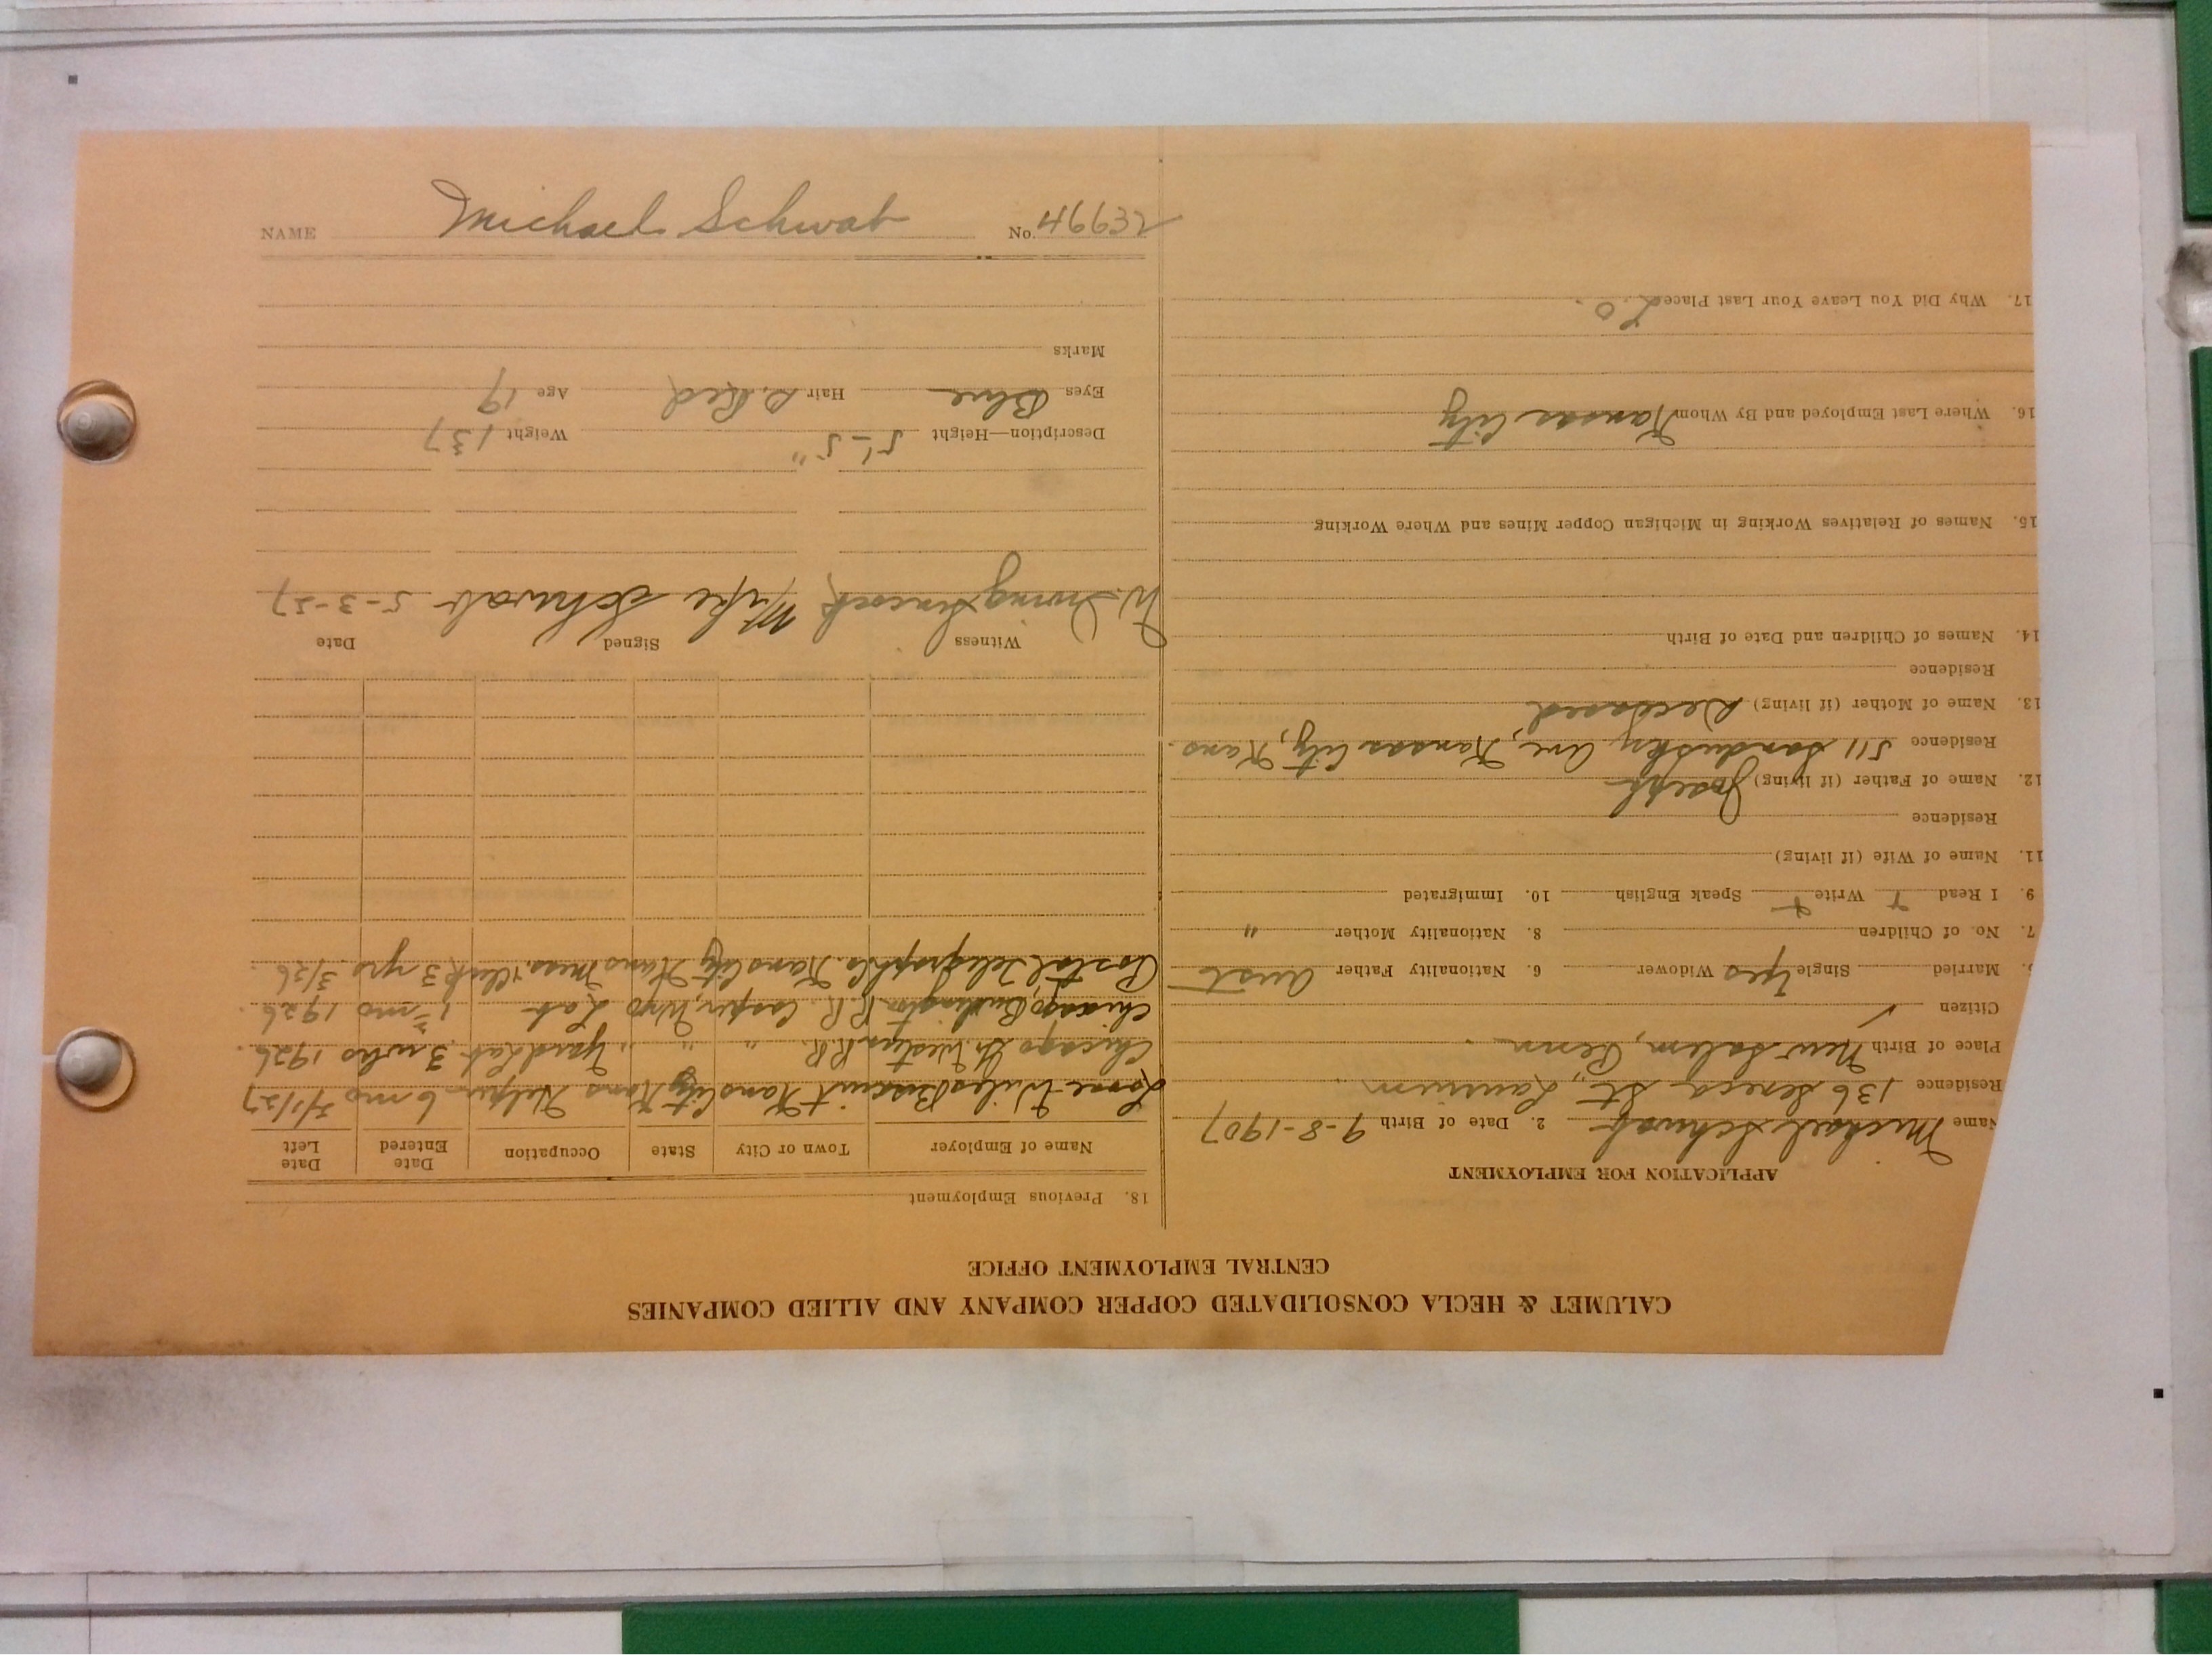 CALUMET & HECLA CONSOLIDATED COPPER COMPANY AND ALLIED COMPANIES
CENTRAL EMPLOYMENT OFFICE
APPLICATION FOR EMPLOYMENT
Name Michael Schwab 2. Date of Birth 9-8-1907
Residence 136 Seneca St., Laurium
Place of Birth New Salem, Penn
Citizen ✓
5. Married Single Yes Widower 6. Nationality Father Aust
7. No. of Children 8. Nationality Mother "
9. I Read + Write + Speak English 10. Immigrated
11. Name of Wife (If living)
Residence
12. Name of Father (if living) Joseph
Residence 511 Sandusky Ave, Kansas City, Kans.
13. Name of Mother (if living) Deceased
Residence
14. Names of Children and Date of Birth
15. Names of Relatives Working in Michigan Copper Mines and Where Working
16. Where Last Employed and By Whom Kansas City
17. Why Did You Leave Your Last Place L.O.
18. Previous Employment
Name of Employer Town or City State Occupation Date Entered Date Left
Loose Wiles Biscuit Kans City Kans Helper 6 mo 3/1/27
Chicago Gr. Western R.R. " " Yard Lab 3 wks 1926.
Chicago, Burlington R.R. Casper, Wyo Lab 1926.
Postal Telegraph Co. Kans City Kans Mess. & Clerk 3 yrs. 3/26.
Witness Signed Date
W. Irving Mike Schwab 5-3-27
Description—Height 5'-5" Weight 137
Eyes Blue Hair D. Red Age 19
Marks
NAME Michael Schwab No. 46632